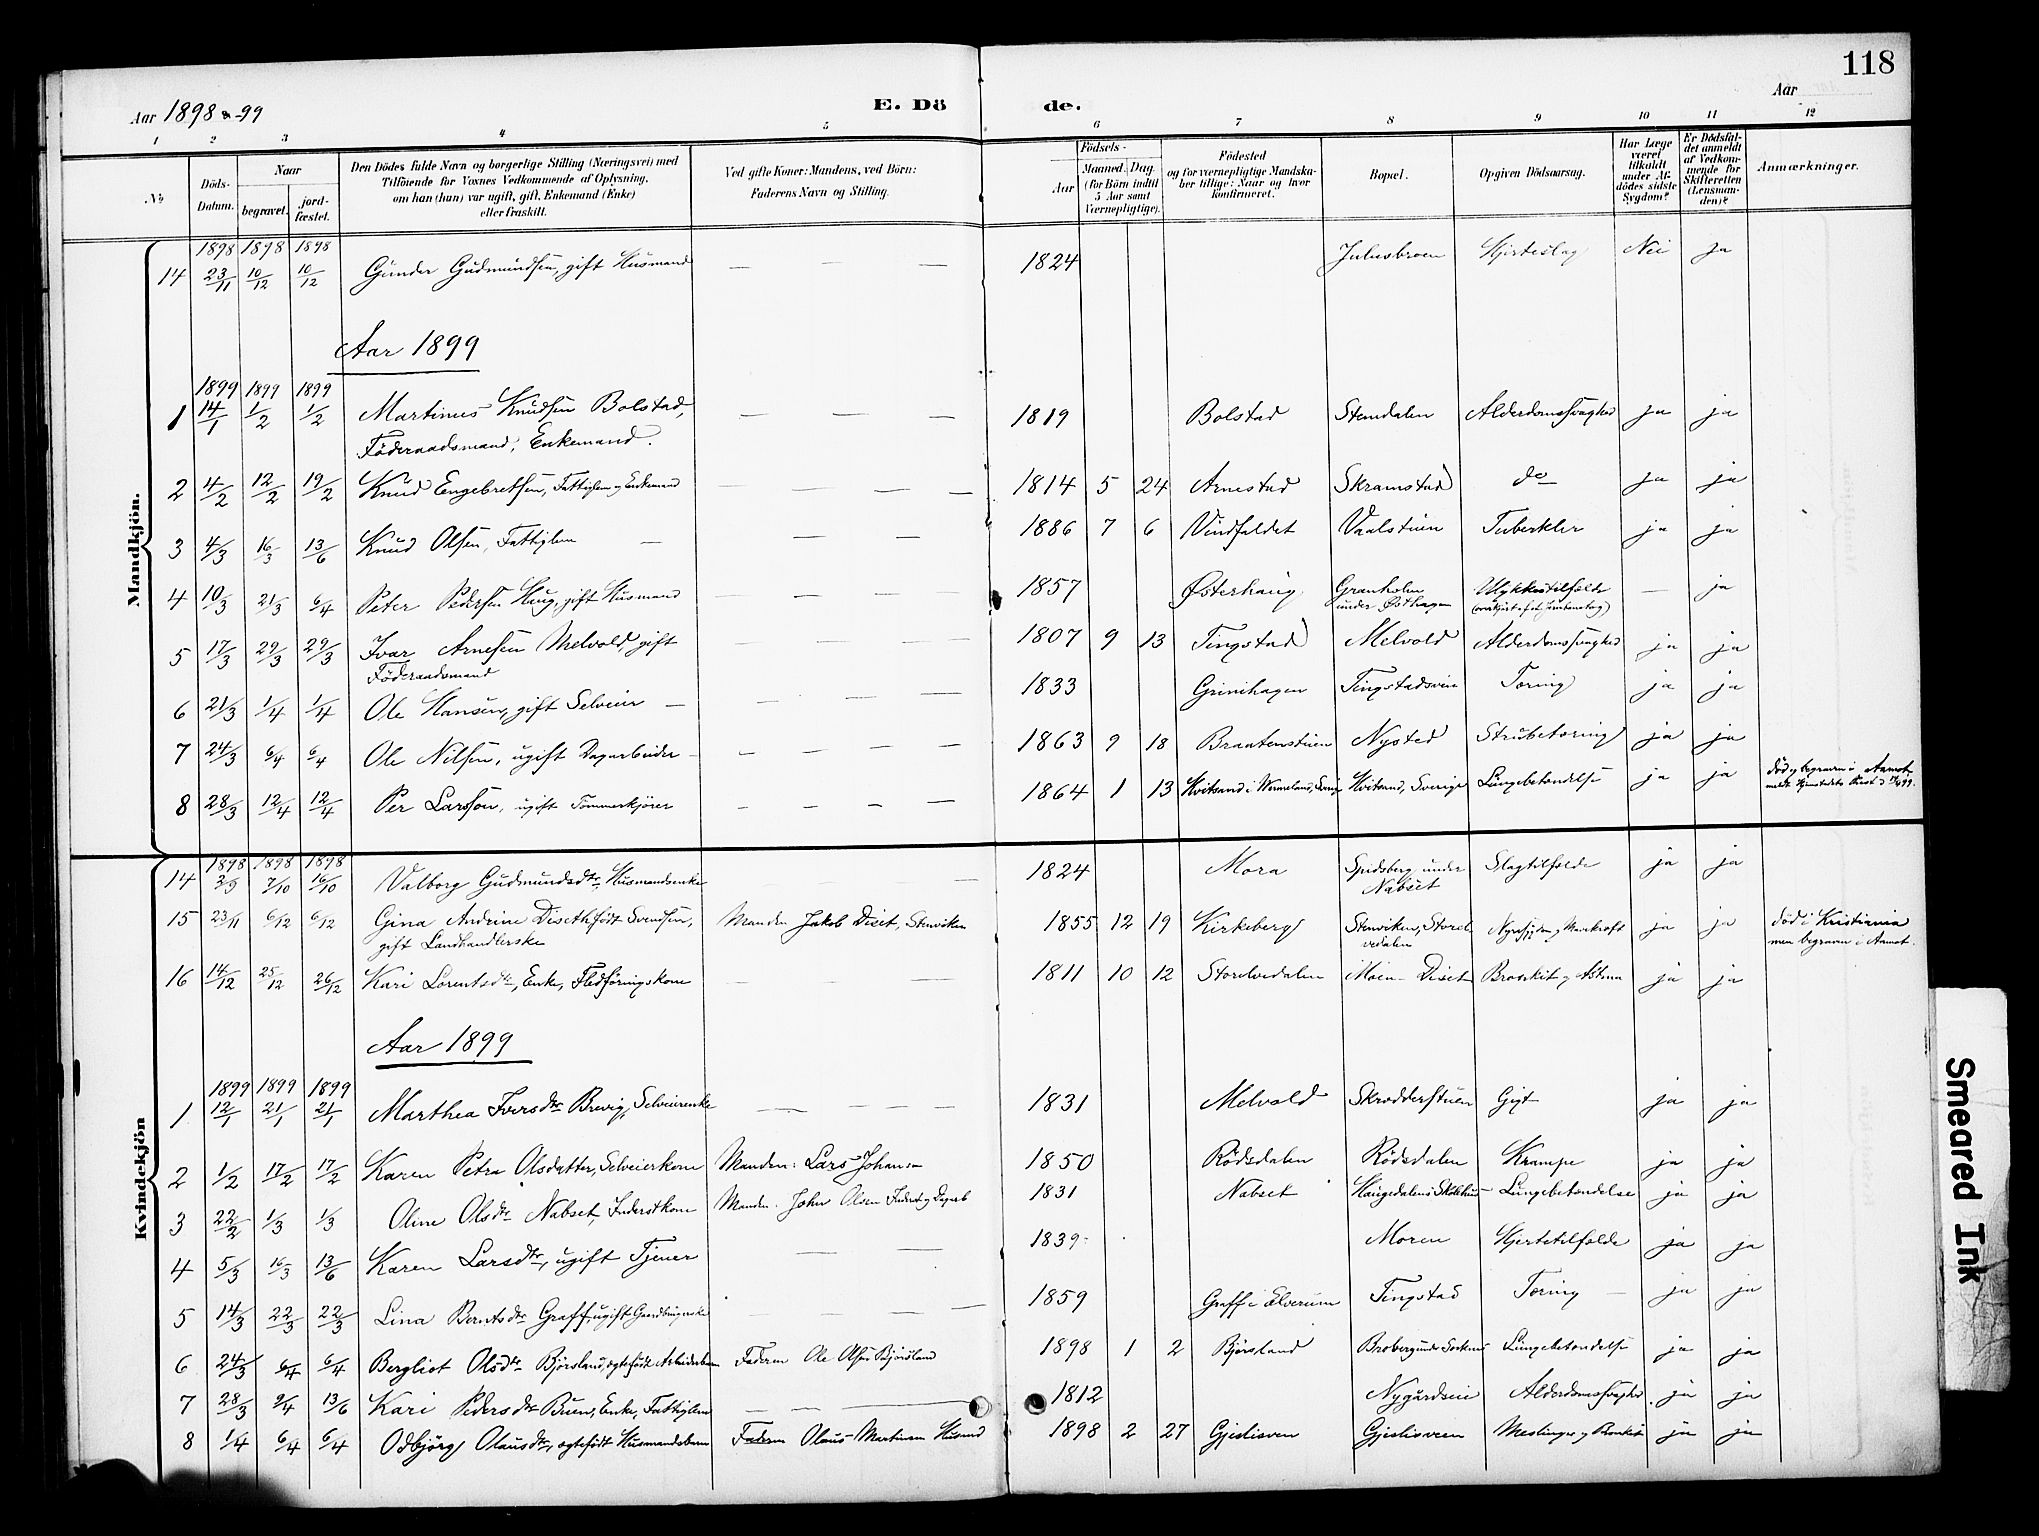 118
Aar 1898 & -99
E. Dö de.
Aar
1 2 3 4 5 6 7 8 9 10 11 12
No
Döds-Datum.
Naar
begravet.
jord-fæstet.
Den Dödes fulde Navn og borgerlige Stilling (Næringsvei) med
Tilföiende for Voxnes Vedkommende af Oplysning,
om han (hun) var ugift, gift, Enkemand (Enke)
eller fraskilt.
Ved gifte Koner: Mandens, ved Börn:
Faderens Navn og Stilling.
Födsels-
Aar
Maaned. Dag.
(for Börn indtil
5 Aar samt
Værnepligtige).
Födested
og for værnepligtige Mandska-
ber tillige: Naar og hvor
konfirmeret.
Bopæl.
Opgiven Dödsaarsag.
Har Læge
været
tilkaldt
under Af-
dödes sidste
Sygdom?
Er Dödsfal-
det anmeldt
af Vedkom-
mende for
Skifteretten
(Lensman-
den)?
Anmærkninger.
Mandkjön.
1898 1898 1898
14 23/11 10/12 10/12 Gunder Gudmundsen, gift Husmand — — — 1824 Julusbroen Hjerteslag Nei ja
Aar 1899
1899 1899 1899
1 14/1 1/2 1/2 Martinus Knudsen Bolstad, — — — 1819 Bolstad Stemdalen Alderdomssvaghed ja ja
Föderaadsmand, Enkemand.
2 4/2 12/2 19/2 Knud Engebretsen, Fattiglem og Enkemand — — — 1814 5 24 Arnestad Skramstad do ja ja
3 4/3 16/3 13/6 Knud Olsen, Fattiglem — — — 1886 7 6 Vindfaldet Vaalstuen Tuberkler ja ja
4 10/3 21/3 6/4 Peter Pedersen Haug, gift Husmand — — — 1857 Østerhaug Granholen Ulykkestilfælde — ja
under Østhagen
5 17/3 29/3 29/3 Ivar Arnesen Melvold, gift — — — 1807 9 13 Tingstad Melvold Alderdomssvaghed ja ja
Föderaadsmand
6 21/3 1/4 1/4 Ole Hansen, gift Selveier — — — 1833 Grinihagen Tingstadsveen Tæring ja ja
7 24/3 6/4 6/4 Ole Nilsen, ugift Dagarbeider — — — 1863 9 18 Braatenstuen Nysted Strubetæring ja ja
8 28/3 12/4 12/4 Per Larsson, ugift Tømmerkjører — — — 1864 1 13 Hvitsand i Wermeland, Hvitsand, Sverige Lungebetændelse ja ja död og begraven i Aamot
Kvindekjön
1898 1898 1898
14 2/9 7/10 16/10 Valborg Gudmundsdtr Husmandsenke — — — 1824 Mora Spidsberg under Slagtilfælde ja ja
Nabset
15 23/11 6/12 6/12 Gina Andrine Diseth født Svendsen, Manden Jakob Diset, Stenviken 1855 12 19 Kirkeberg Stenviken, Storel- ja ja död i Kristiania
gift Landhandlerske vedalen men begraven i Aamot.
16 14/12 25/12 26/12 Kari Lorentsdtr, Enke, Fledföringskone — — — 1811 10 12 Storelvedalen Moen Diset Bronkit og Astma ja ja
Aar 1899
1899 1899 1899
1 12/1 21/1 21/1 Marthea Iversdtr Brevig, Selveierenke — — — 1831 Melvold Skrædderstuen Gigt ja ja
2 1/2 17/2 17/2 Karen Petra Olsdatter, Selveierkone Manden: Lars Johansen 1850 Rödsdalen Rödsdalen Krampe ja ja
3 22/2 1/3 1/3 Oline Olsdtr Nabset, Inderstkone Manden. John Olsen Inderst og Dagarb 1831 Nabset Haugedalens Skolehus Lungebetændelse ja ja
4 5/3 16/3 13/6 Karen Larsdtr, ugift Tjener — — 1839 Moren Hjertetilfælde ja ja
5 14/3 22/3 22/3 Lina Berntsdtr Graff, ugift Gaardbrugerske — — — 1859 Graff i Elverum Tingstad Tæring ja ja
6 24/3 6/4 6/4 Bergliot Olsdtr Björsland, ægtefödt Arbeiderbarn Faderen Ole Olsen Björsland 1898 1 2 Björsland Lungebetændelse ja ja
7 28/3 9/4 13/6 Kari Pedersdtr Buen, Enke, Fattiglem — — — 1812 Nygårdseie Alderdomssvaghed ja ja
8 1/4 6/4 6/4 Odbjörg Olausdtr, ægtefödt Husmandsbarn Faderen Olaus Martinsen Husmd 1898 2 27 Gjeslisveen Gjeslisveen Meslinger og Bronkit ja ja
Smeared Ink